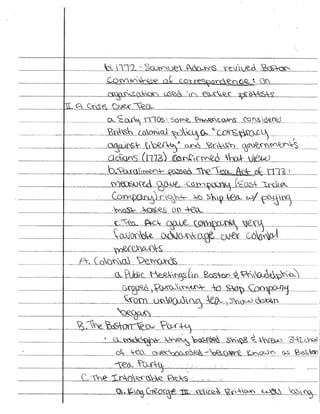 b. 1772 - Samuel Adams revived Boston
Committee of correspondence: an
organization used in earlier protests
II. A Crisis Over Tea
a. Early 1770s: some Americans considered
British colonial policy a "conspiracy
against liberty" and British government's
actions (1773) confirmed that view
b. Paraliment passed The Tea Act of 1773:
measured gave company (East India
Company) right to ship tea w/ paying
most taxes on tea
c. Tea Act gave company very
favorable advantage over colonial
merchants
A. Colonial Demands
a. Public Meetings (in Boston & Philadelphia)
argued, Paraliment to stop Company
from unloading tea, showdown
began
B. The Boston Tea Party
a. midnight they boarded ships & threw 342 ches
of tea overboarded - became known as Boston
Tea Party
C. The Intolerable Acts
a. King George III noticed Britian was losing